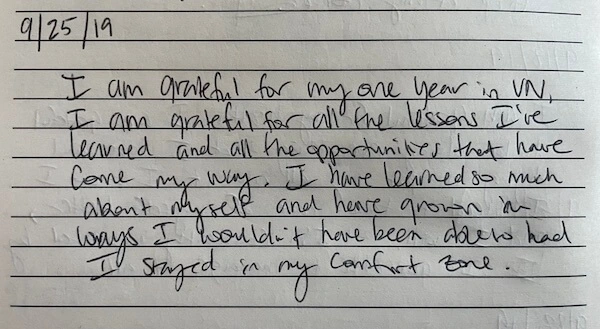 9/25/19
I am grateful for my one year in VN.
I am grateful for all the lessons I've
learned and all the opportunities that have
come my way. I have learned so much
about myself and have grown in
ways I wouldn't have been able to had
I stayed in my comfort zone.